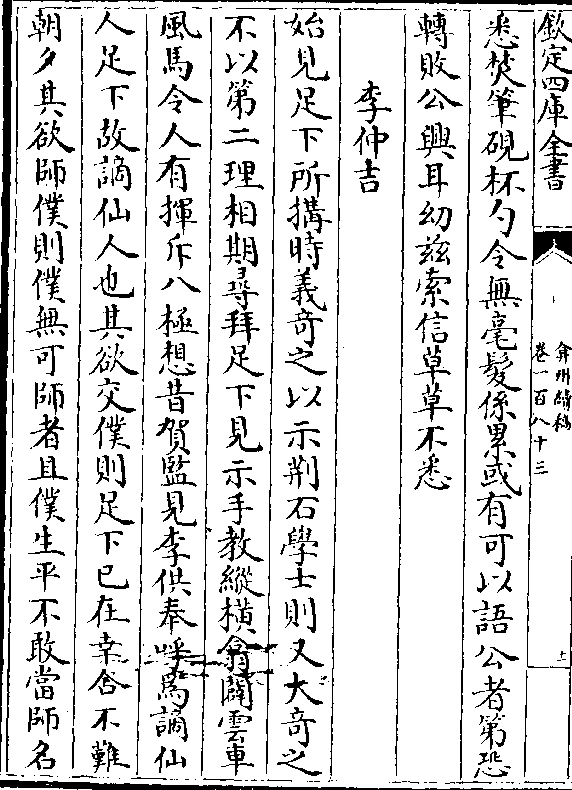 欽定四庫全書
弇州續稿
卷一百八十三
十
悉焚筆硯杯勺令無毫髮係累或有可以語公者第恐
轉敗公興耳幼茲索信草草不悉
李仲吉
始見足下所搆時義奇之以示荆石學士則又大奇之
不以第二理相期尋拜足下見示手教縱横翕闢雲車
風馬令人有揮斥八極想昔賀監見李供奉呼爲謫仙
人足下故謫仙人也其欲交僕則足下已在幸舍不難
朝夕其欲師僕則僕無可師者且僕生平不敢當師名